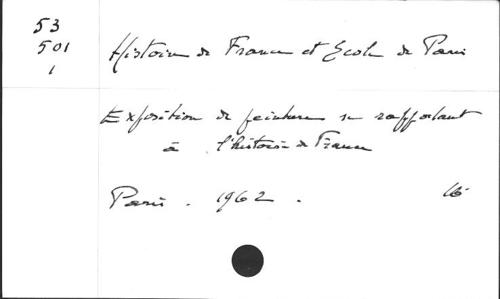 53
501
1
Histoire de France et Ecole de Paris
Exposition de peinture se rapportant
à l'histoire de France
Paris . 1962 . 16°